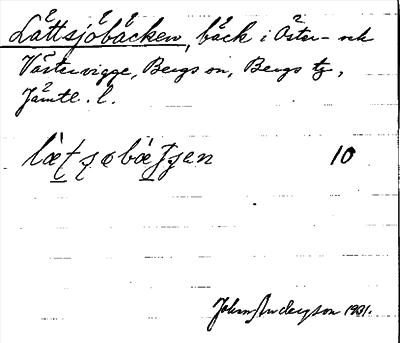 Lättsjöbäcken, bäck i Öster- och
Västervigge, Bergs sn, Bergs tg,
Jämtl. l.
10
John Anderzon 1931.